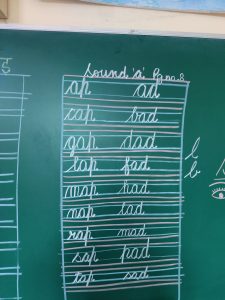 sound 'a'
ap ad
cap bad
gap dad
lap fad
map had
nap lad
rap mad
sap pad
tap sad
l
b